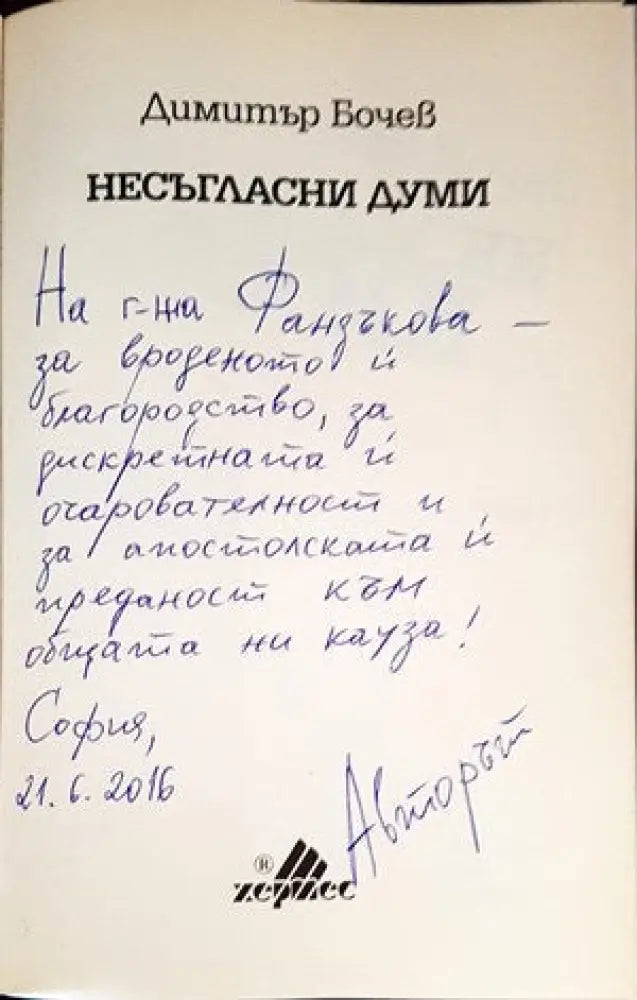 Димитър Бочев
НЕСЪГЛАСНИ ДУМИ
На г-жа Фандъкова –
за вроденото ѝ
благородство, за
дискретната ѝ
очарователност и
за апостолската ѝ
преданост към
общата ни кауза!
София,
21.6.2016
Авторът
хермес